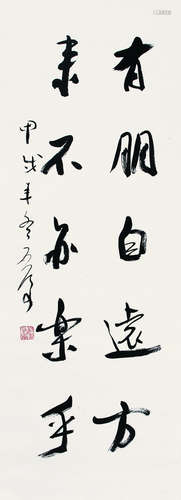 有朋自遠方
来不亦樂乎
甲戌年冬